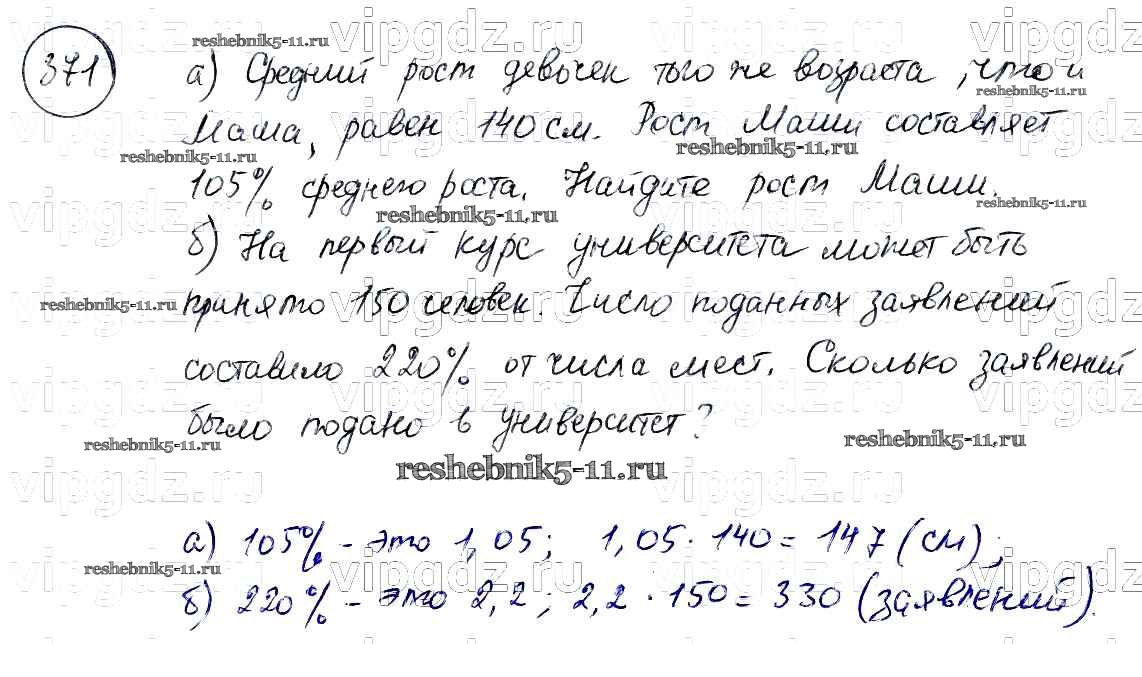 371
а) Средний рост девочек того же возраста, что и
Маша, равен 140 см. Рост Маши составляет
105% среднего роста. Найдите рост Маши.
б) На первый курс университета может быть
принято 150 человек. Число поданных заявлений
составило 220% от числа мест. Сколько заявлений
было подано в университет?
reshebnik5-11.ru
а) 105% - это 1,05; 1,05 · 140 = 147 (см);
б) 220% - это 2,2; 2,2 · 150 = 330 (заявлений).
vipgdz.ru